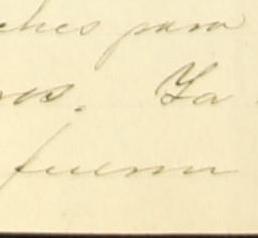 ches para
res. Ya
fueron